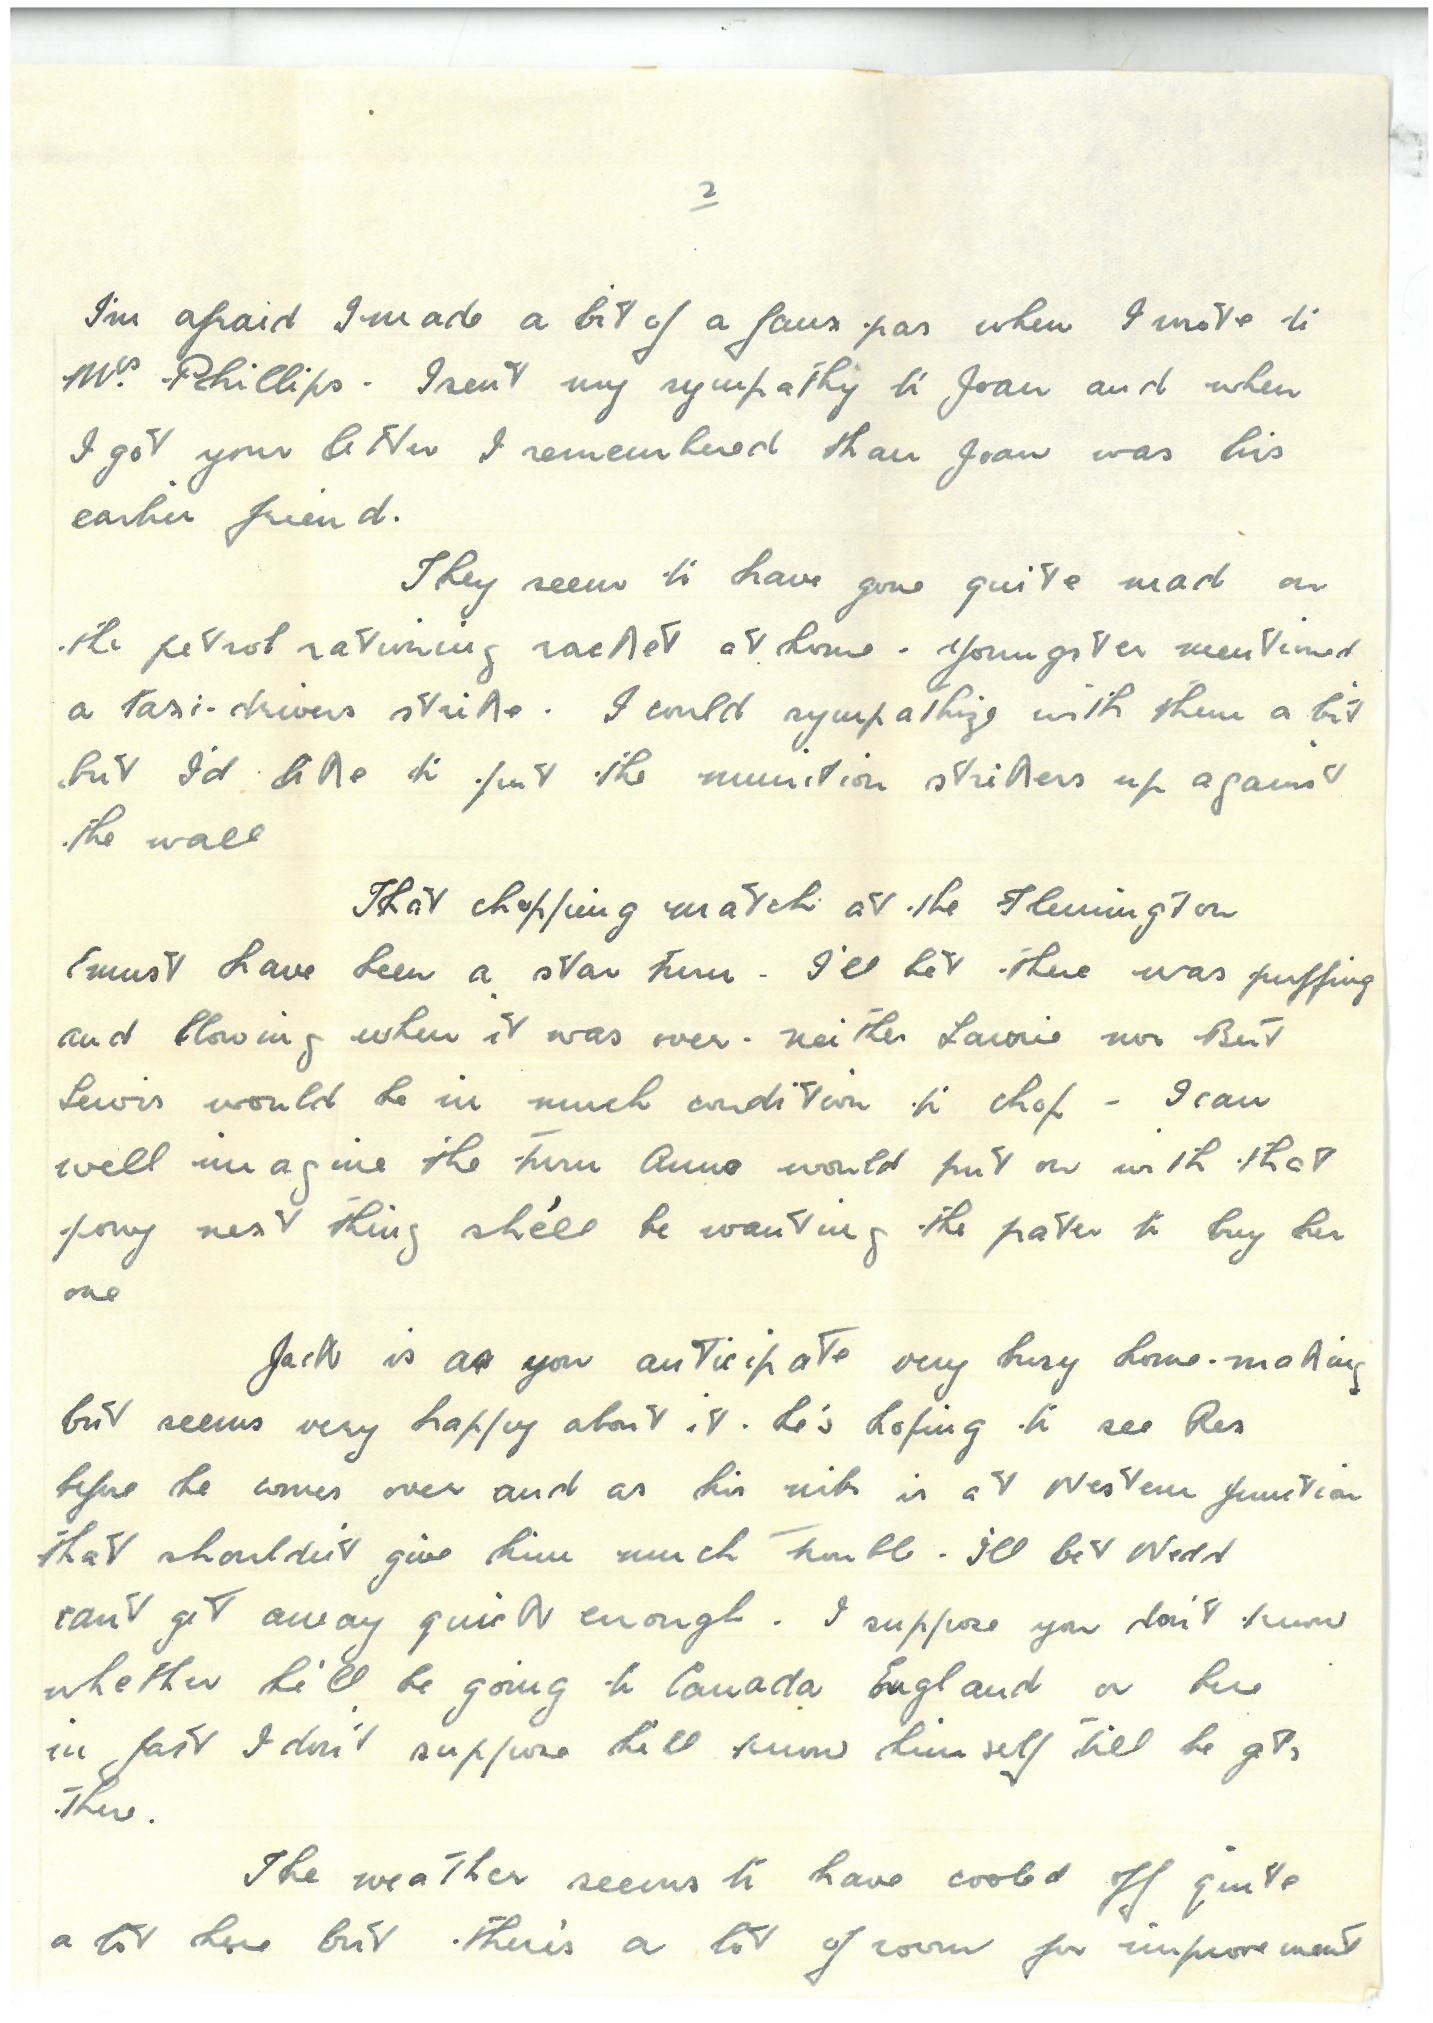 2
I'm afraid I made a bit of a faux pas when I wrote to
Mrs. Phillips. I sent my sympathy to Joan and when
I got your letter I remembered than Joan was his
earlier friend.
They seem to have gone quite mad on
the petrol rationing racket at home. Youngster mentioned
a taxi-drivers strike. I could sympathize with them a bit
but I'd like to put the munition strikers up against
the wall
That chopping match at the Flemington
must have been a star turn. I'll bet there was puffing
and blowing when it was over. neither Laurie nor Bert
Lewis would be in much condition to chop - I can
well imagine the turn Anne would put on with that
pony next thing she'll be wanting the pater to buy her
one
Jack is as you anticipate very busy home-making
but seems very happy about it. he's hoping to see Rex
before he comes over and as his nibs is at Western Junction
that shouldn't give him much trouble. I'll bet Nedd
can't get away quick enough. I suppose you don't know
whether he'll be going to Canada England or here
in fact I don't suppose he'll know himself till he gets
there.
The weather seems to have cooled off quite
a lot here but there's a lot of room for improvement